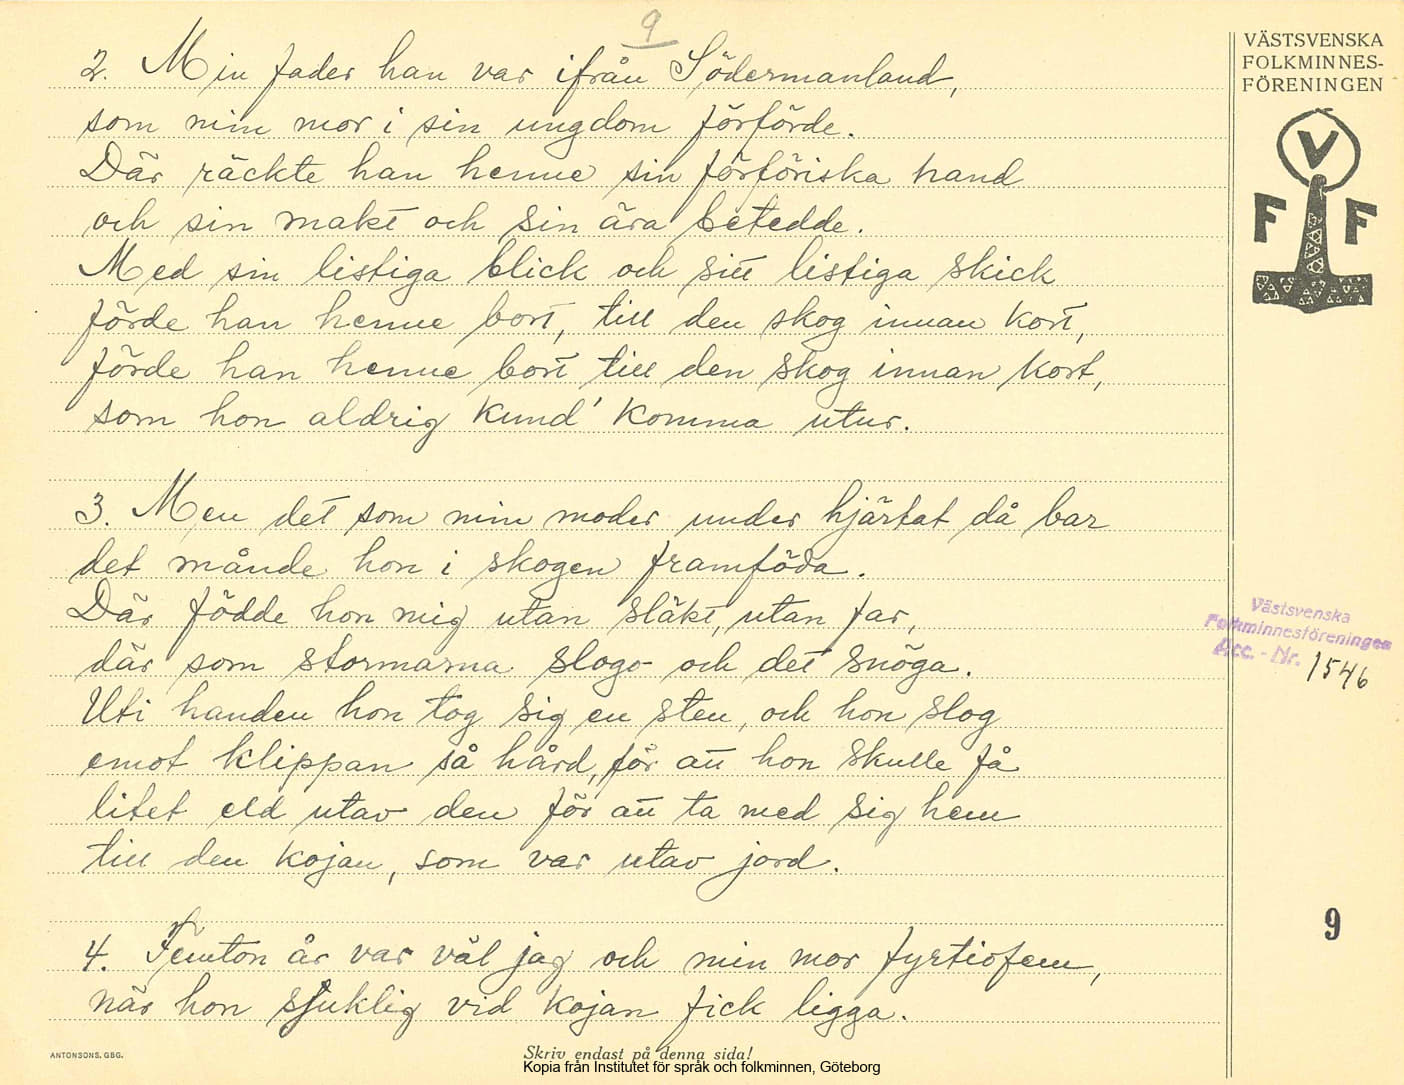 9
2. Min fader han var ifrån Södermanland,
som min mor i sin ungdom förförde.
Där räckte han henne sin förföriska hand
och sin makt och sin ära betedde.
Med sin listiga blick och sitt listiga skick
förde han henne bort, till den skog innan kort,
förde han henne bort till den skog innan kort,
som hon aldrig kund' komma utur.
3. Men det som min moder under hjärtat då bar
det månde hon i skogen framföda.
Där födde hon mig utan släkt, utan far,
där som stormarna slogo och det snöga.
Uti handen hon tog sig en sten, och hon slog
emot klippan så hård, för att hon skulle få
litet eld utav den för att ta med sig hem
till den kojan, som var utav jord.
4. Femton år var väl jag och min mor fyrtiofem,
när hon sjuklig vid kojan fick ligga.
VÄSTSVENSKA
FOLKMINNES-
FÖRENINGEN
V
F F
Västsvenska
Folkminnesföreningen
Acc. - Nr. 1546
9
ANTONSONS, GBG.
Skriv endast på denna sida!
Kopia från Institutet för språk och folkminnen, Göteborg